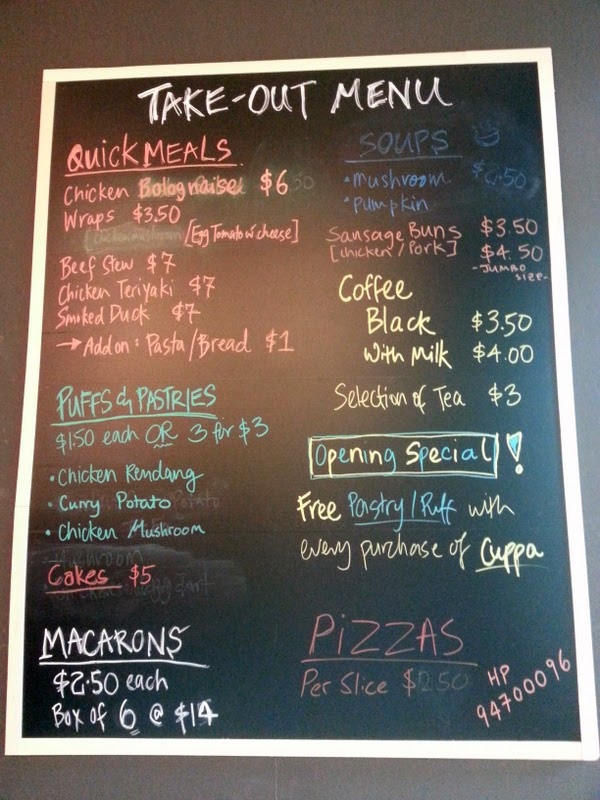 TAKE-OUT MENU
QUICK MEALS
Chicken Bolognaise $6
Wraps $3.50
[Chicken mushroom/Egg Tomato w cheese]
Beef Stew $7
Chicken Teriyaki $7
Smoked Duck $7
→ Add on: Pasta/Bread $1
PUFFS & PASTRIES
$1.50 each OR 3 for $3
• Chicken Rendang
• Curry Potato
• Chicken Mushroom
Cakes $5
MACARONS
$2.50 each
Box of 6 @ $14
SOUPS
• mushroom
• pumpkin
Sausage Buns $3.50
[chicken/Pork] $4.50
-JUMBO SIZE-
Coffee
Black $3.50
With Milk $4.00
Selection of Tea $3
Opening Special!
Free Pastry/Puff with
every purchase of Cuppa
PiZZAS
Per Slice $2.50
HP
94700096